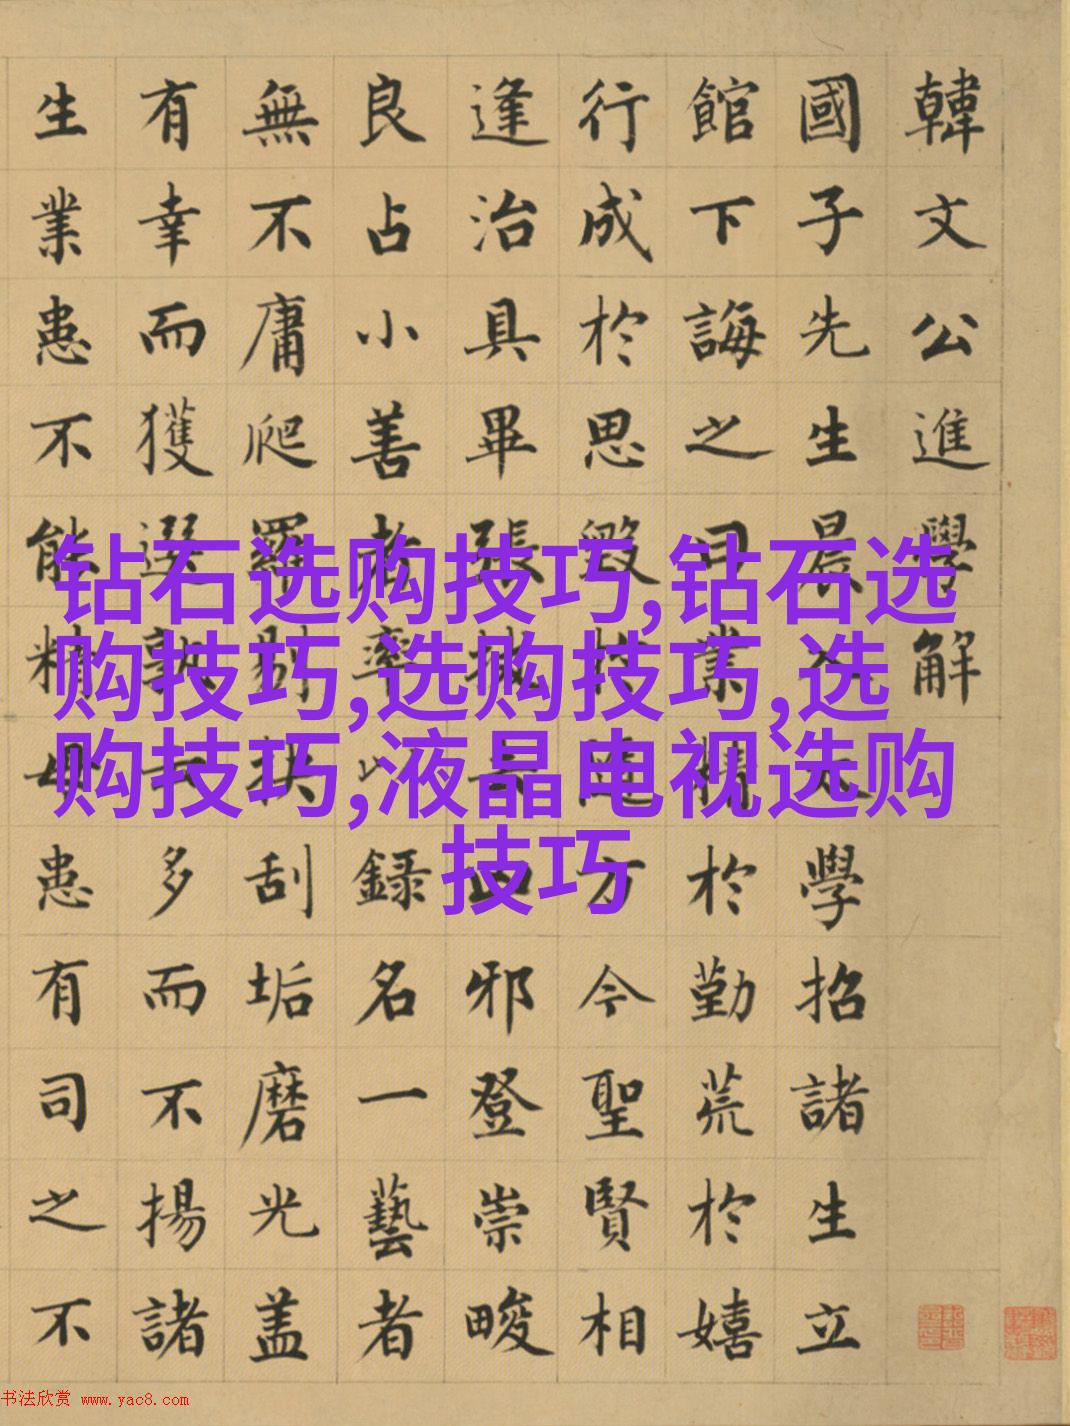 韓文公進學解
國子先生晨入太學招諸生立
館下誨之曰業精於勤荒於嬉
行成於思毀於隨方今聖賢相
逢治具畢張拔去凶邪登崇畯
良占小善者率以錄名一藝者
無不庸爬羅剔抉刮垢磨光盖
有幸而獲選孰云多而不揚諸
生業患不能精毋患有司之不
钻石选购技巧,钻石选
购技巧,选购技巧,选
购技巧,液晶电视选购
技巧
书法欣赏 www.yac8.com